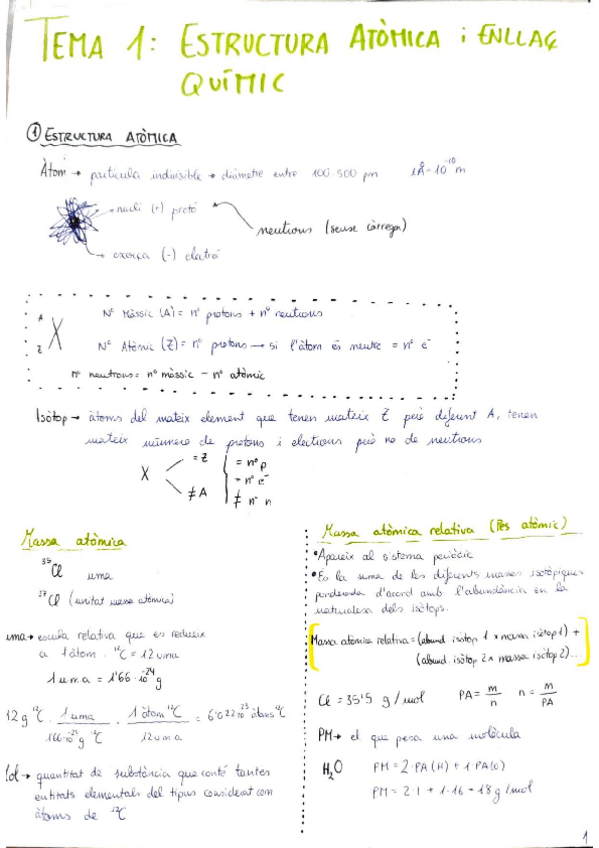 TEMA 1: ESTRUCTURA ATÒMICA i ENLLAÇ
QUÍMIC
① ESTRUCTURA ATÒMICA
Àtom → partícula indivisible → diàmetre entre 100-500 pm 1Å = 10⁻¹⁰ m
nucli (+) protó
neutrons (sense càrrega)
escorça (-) electró
A
X
Z
Nº Màssic (A) = nº protons + nº neutrons
Nº Atòmic (Z) = nº protons → si l'àtom és neutre = nº e⁻
nº neutrons = nº màssic - nº atòmic
Isòtop → àtoms del mateix element que tenen mateix Z però diferent A, tenen
mateix número de protons i electrons però no de neutrons
X
= Z
≠ A
= nº p
= nº e⁻
≠ nº n
Massa atòmica
³⁵Cl uma
³⁷Cl (unitat massa atòmica)
uma → escala relativa que es redueix
a 1 àtom. ¹²C = 12 uma
1 uma = 1'66·10⁻²⁴ g
12 g ¹²C · 1 uma / 1'66·10⁻²⁴ g ¹²C · 1 àtom ¹²C / 12 uma = 6'022·10²³ àtoms ¹²C
Mol → quantitat de substància que conté tantes
entitats elementals del tipus considerat com
àtoms de ¹²C
Massa atòmica relativa (Pes atòmic)
• Apareix al sistema periòdic
• És la suma de les diferents masses isotòpiques
ponderada d'acord amb l'abundància en la
naturalesa dels isòtops.
Massa atòmica relativa = (abund. isòtop 1 x massa isòtop 1) +
(abund. isòtop 2 x massa isòtop 2)...
Cl = 35'5 g/mol PA = m/n n = m/PA
PM → el que pesa una molècula
H₂O PM = 2·PA(H) + 1·PA(O)
PM = 2·1 + 1·16 = 18 g/mol
1